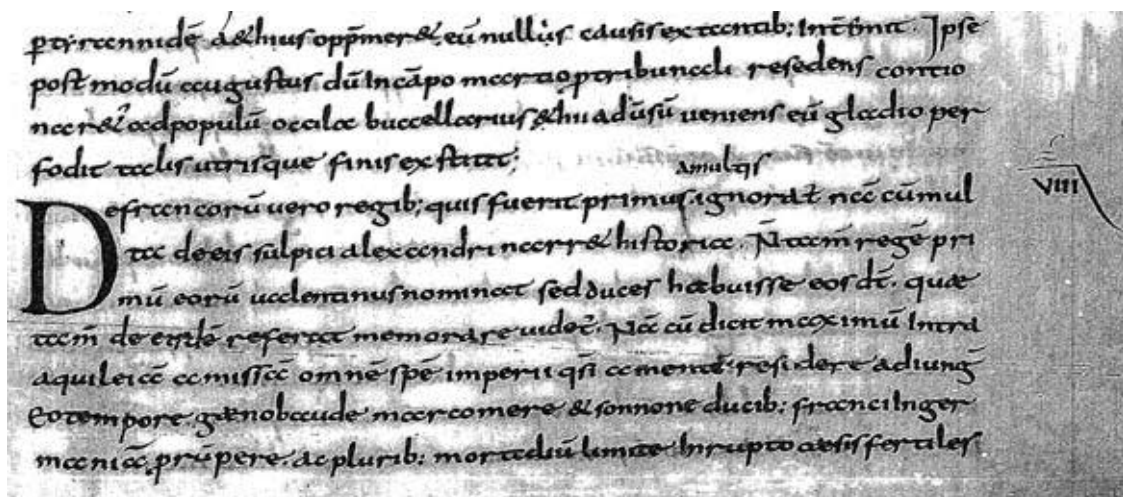 p tyrannidē a&hius opp̄mer&, eū nullius causis extantib; Int̄emit. Ipse
post modū augustus dū In cāpo martio p tribunali resedens contio
nar& ad populū occila buccellarius &hii adūsū ueniens eū gladio per
fodit talis utrisque finis exstitit;
a multis
De francorū uero regib; quis fuerit primus. ignorat̄ nā cū mul
ta de eis sulpici alexandri narr& historia. N̄ tam̄ regē pri
mū eorū ualentinus nominat sed duces habuisse eos dt̄. quae
tam̄ de eisdē referat memorare uidet̄. Nā cū dicit maximū Intra
aquileiā amissā omnē spē imperii qsi amente residere adiunḡ
Eo tempore genobaude marcomere & sonnone ducib; franci In ger
maniā prūpere. ac plurib; mortaliū limite Inrupto caesis fertiles
VIII